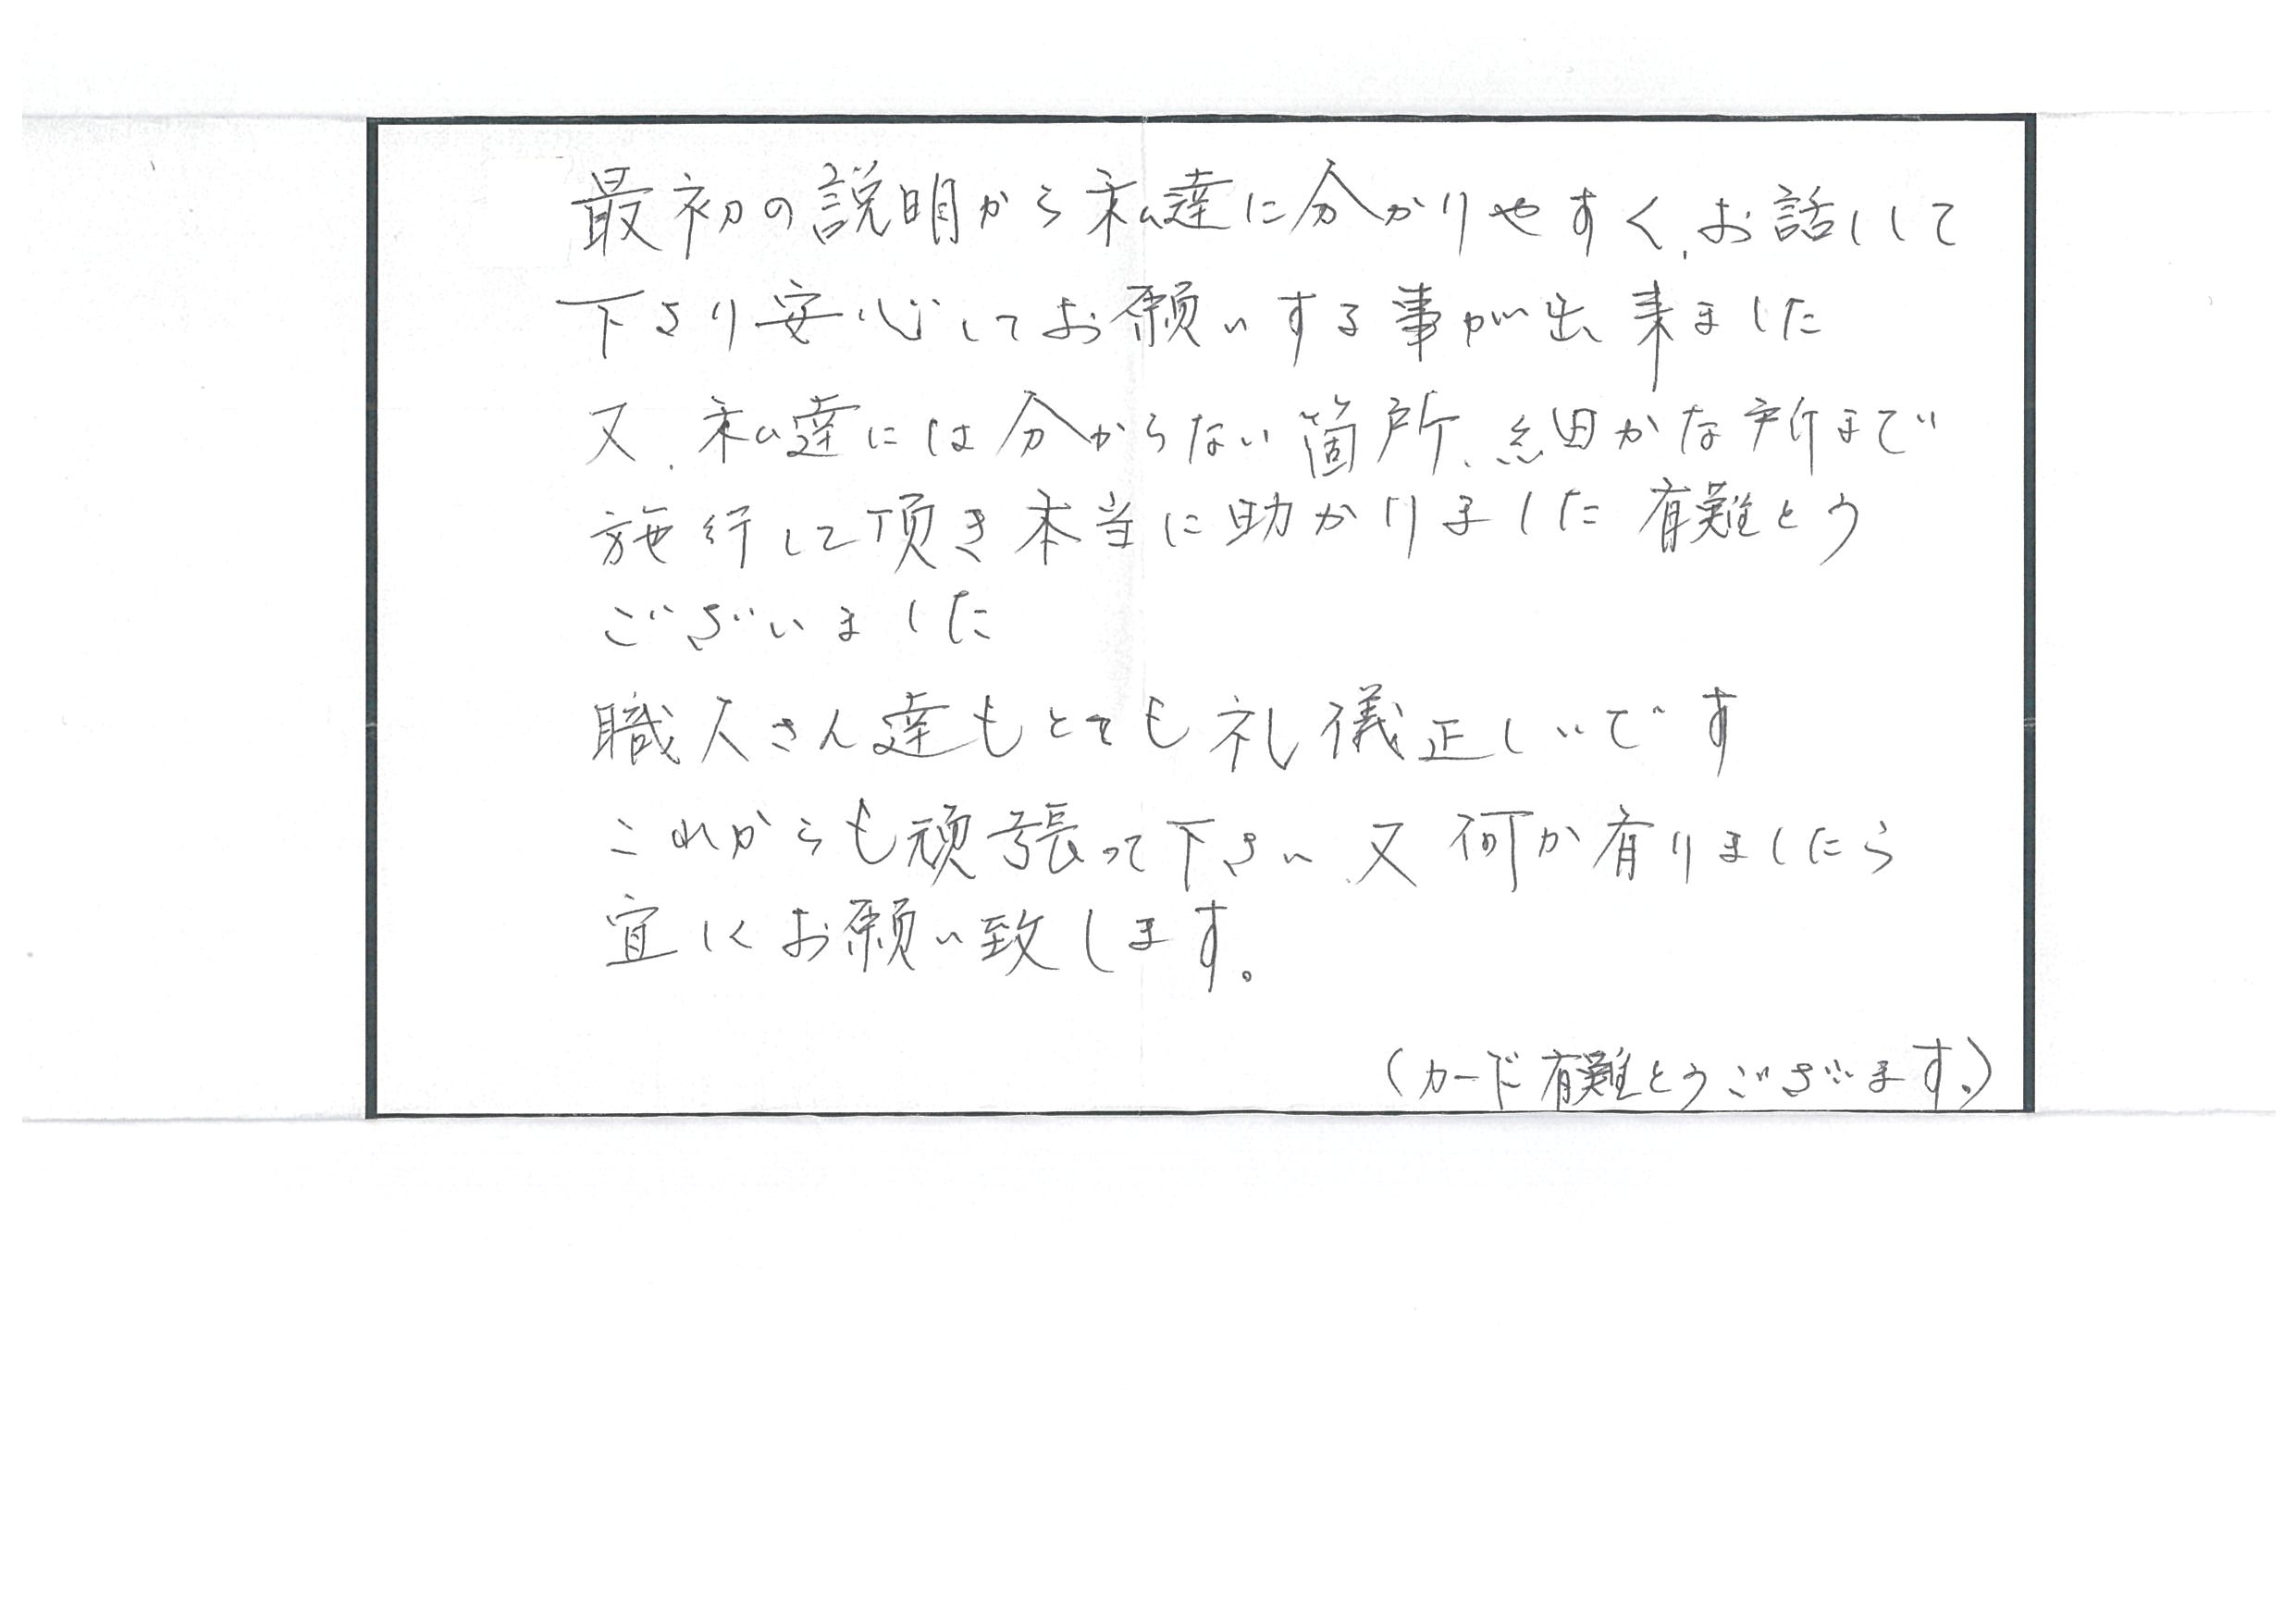 最初の説明から私達に分かりやすく、お話しして
下さり安心してお願いする事が出来ました
又、私達には分からない箇所、細かな所まで
施行して頂き本当に助かりました有難とう
ございました
職人さん達もとても礼儀正しいです
これからも頑張って下さい、又何か有りましたら
宜しくお願い致します。
(カード有難とうございます。)